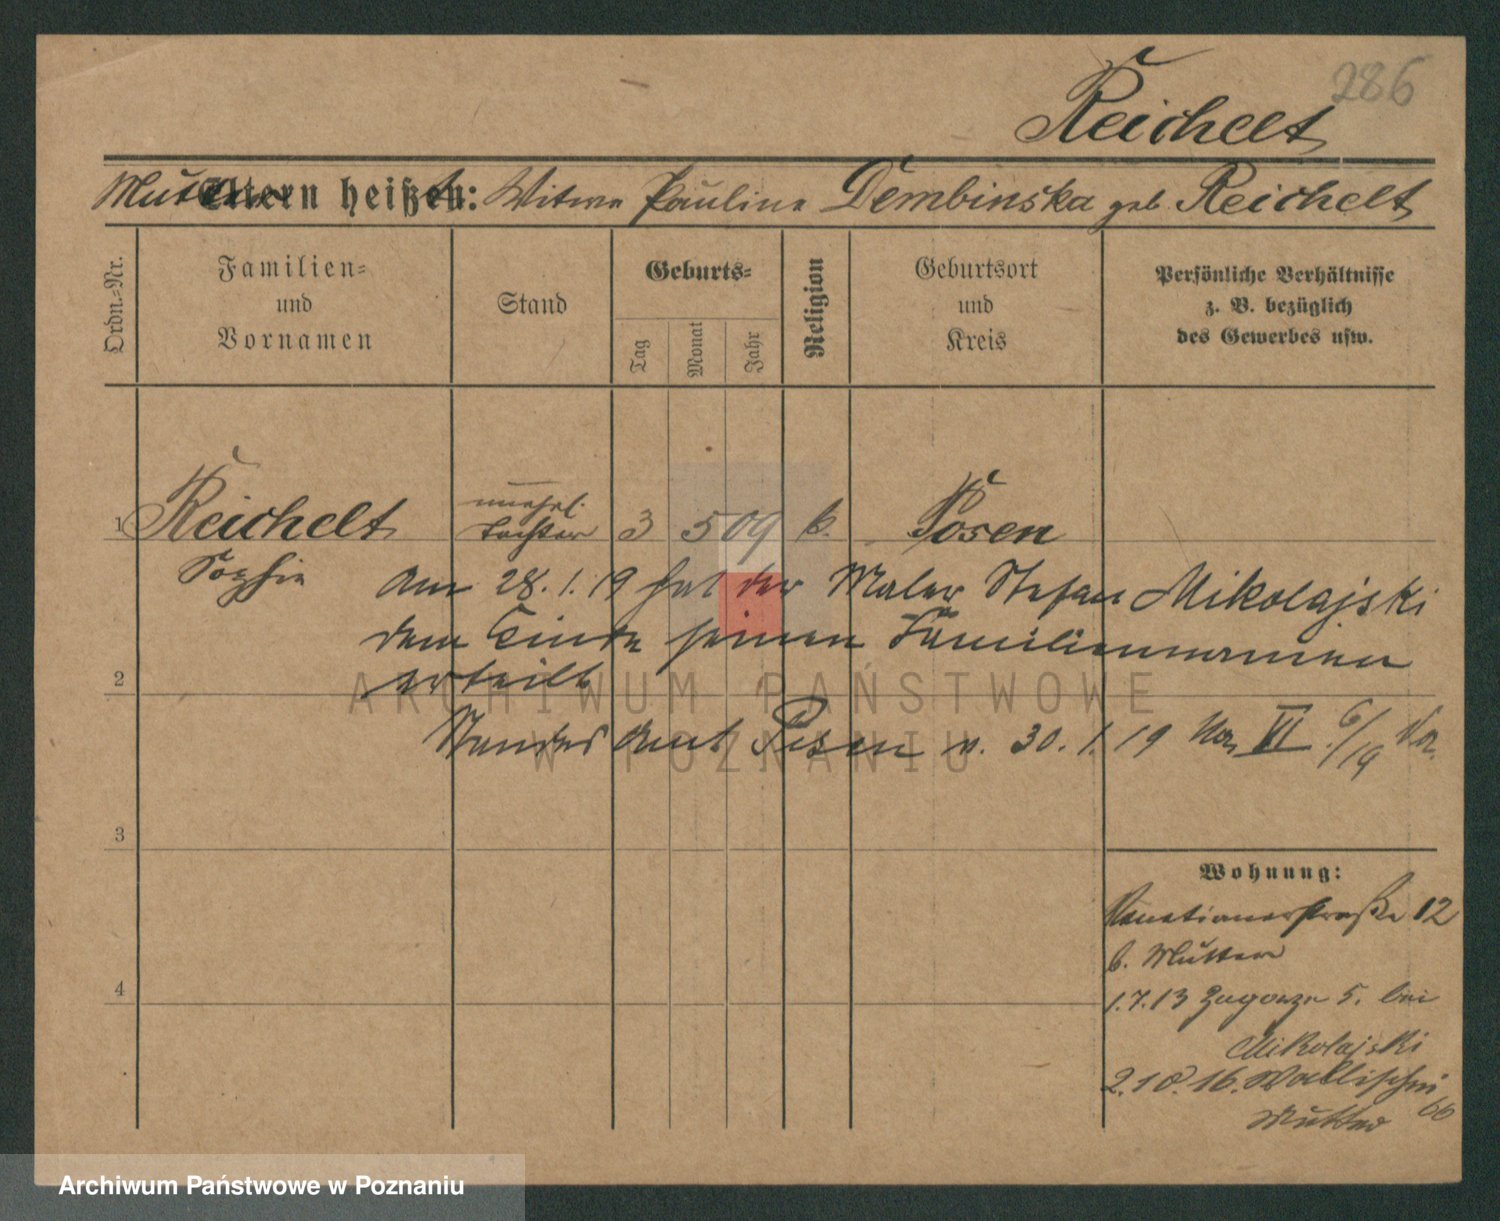 286
Reichelt
Mutter heißt: Eltern heißen: Witwe Pauline Dembinska geb. Reichelt
Ordn.-Nr.
Familien- und Vornamen
Stand
Geburts-
Tag
Monat
Jahr
Religion
Geburtsort und Kreis
Persönliche Verhältnisse z. B. bezüglich des Gewerbes usw.
1 Reichelt unehel. 3 5 09 k. Posen
Sophie Tochter
Am 28.1.19 hat der Maler Stefan Mikolajski
dem Kinde seinen Familiennamen
2 erteilt
Standesamt Posen v. 30.1.19 VI 6/19
3
4
Wohnung:
Venetianerstraße 12
b. Mutter
1.7.13 Zagorze 5. bei
Mikolajski
2.10.16. Wallischei
66
Mutter
ARCHIWUM PAŃSTWOWE
W POZNANIU
Archiwum Państwowe w Poznaniu